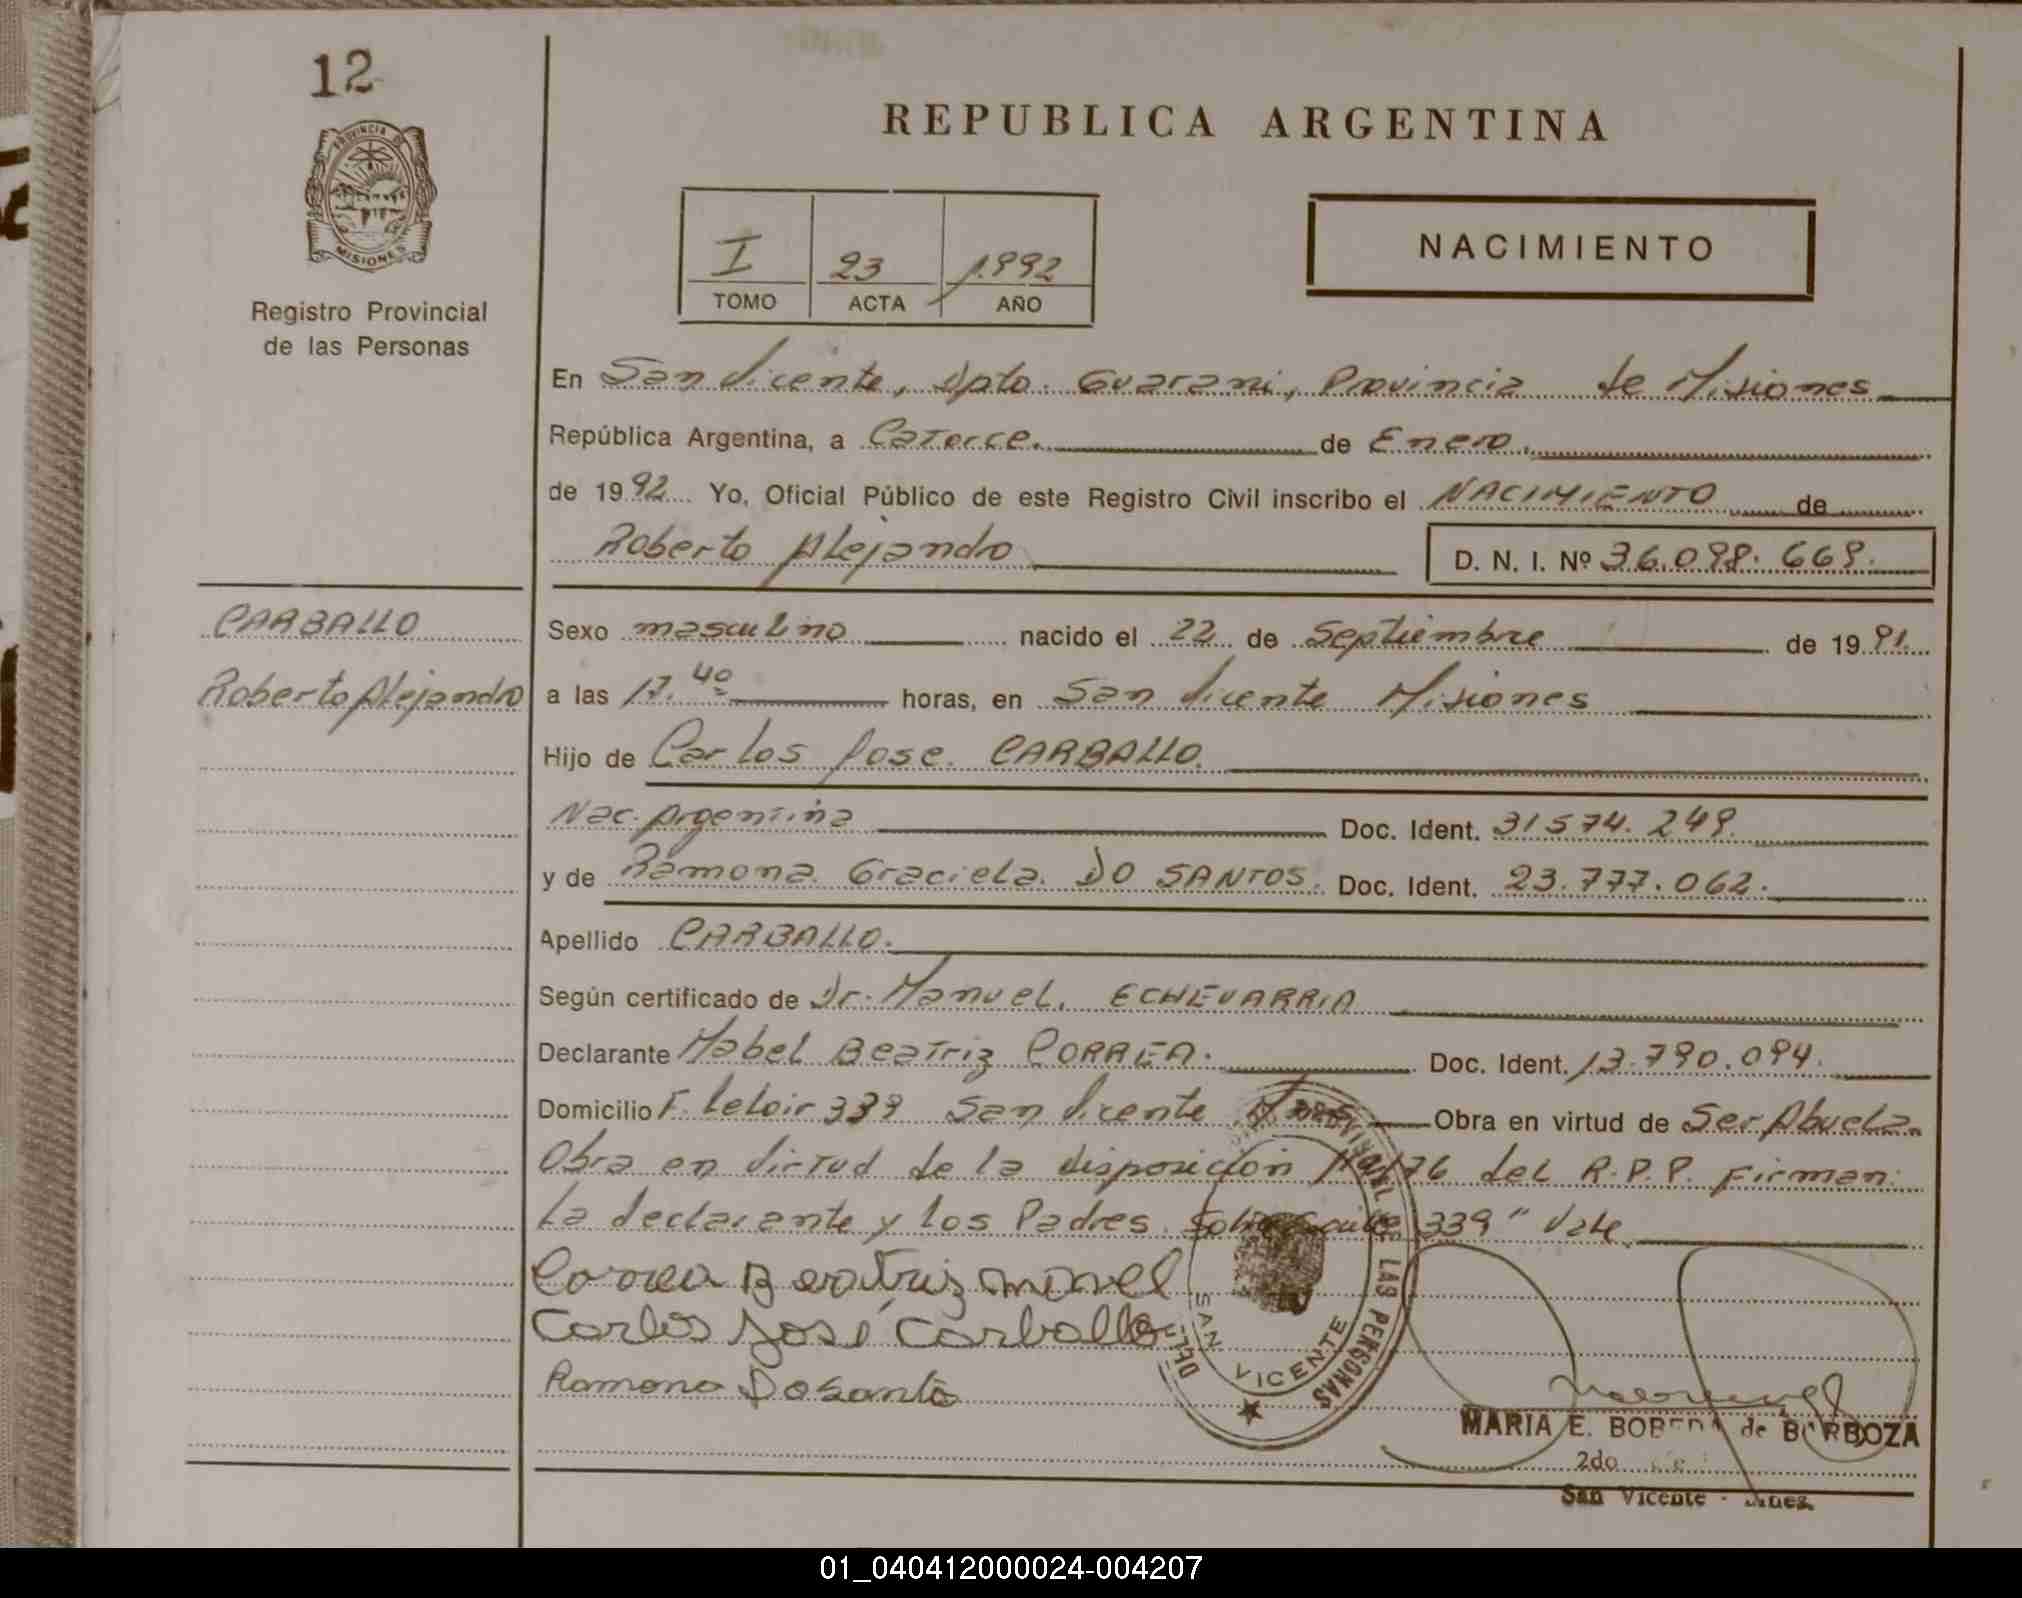 12
PROVINCIA DE
MISIONES
Registro Provincial
de las Personas
REPUBLICA ARGENTINA
I 23 1992
TOMO ACTA AÑO
NACIMIENTO
En San Vicente, Dpto. Guarani, Provincia de Misiones
República Argentina, a Catorce. de Enero.
de 1992 Yo, Oficial Público de este Registro Civil inscribo el NACIMIENTO de
Roberto Alejandro
D. N. I. Nº 36.098.669.
CARBALLO
Roberto Alejandro
Sexo masculino nacido el 22 de Septiembre de 1991.
a las 17.40 horas, en San Vicente Misiones
Hijo de Carlos Jose. CARBALLO.
Nac. Argentina Doc. Ident. 31574.249.
y de Ramona Graciela. DO SANTOS. Doc. Ident. 23.777.062.
Apellido CARBALLO.
Según certificado de Dr. Manuel. ECHEVARRIA
Declarante Mabel Beatriz CORREA. Doc. Ident. 13.790.094.
Domicilio F. Leloir 339 San Vicente Obra en virtud de Ser Abuela.
Obra en virtud de la disposición /76 del R.P.P. Firman:
La declarante y los Padres. 339" Vale
Correa Beatriz
Carlos José Carballo
Ramona Dosanto
LAS PERSONAS
SAN VICENTE
MARIA E. de BARBOZA
2do
San Vicente - Mnes.
01_040412000024-004207